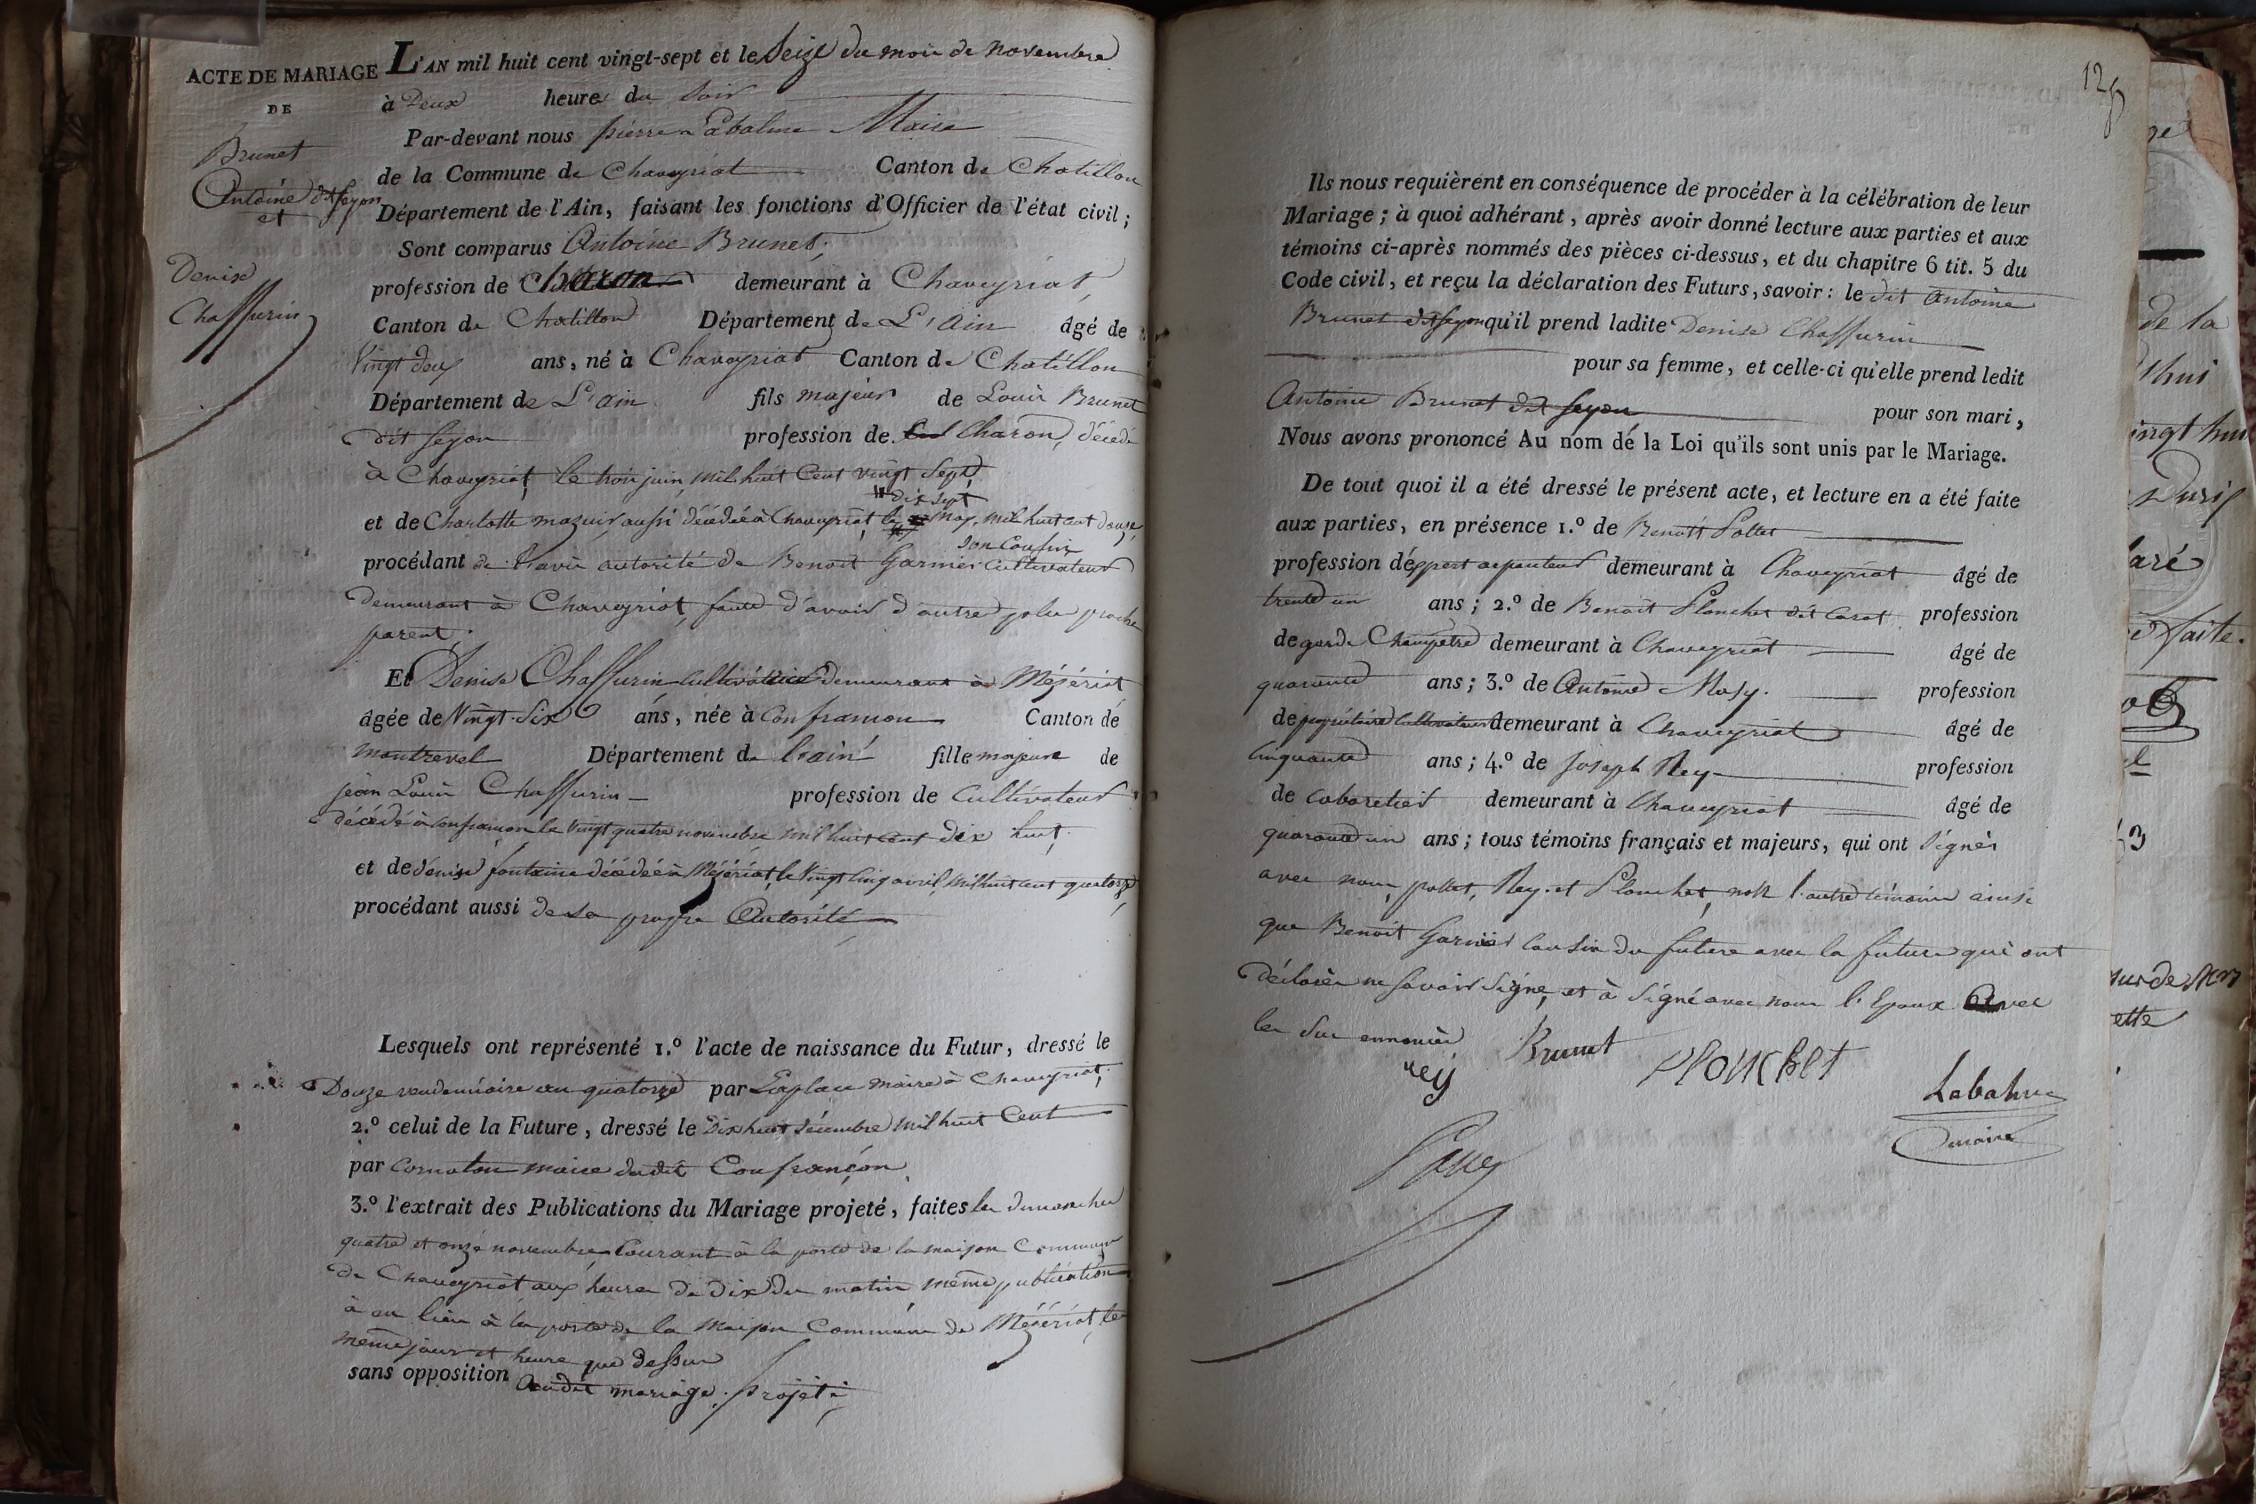 ACTE DE MARIAGE
DE
Brunet
Antoine dit feyon
et
Denise
Chaffurin
L'AN mil huit cent vingt-sept et le Seize du mois de novembre
à Deux heures du Soir
Par-devant nous pierre Labalme Maire
de la Commune de Chaveyriat Canton de Chatillon
Département de l'Ain, faisant les fonctions d'Officier de l'état civil;
Sont comparus Antoine Brunet,
profession de Charon demeurant à Chaveyriat,
Canton de Chatillon Département de L'ain âgé de
Vingt deux ans, né à Chaveyriat Canton de Chatillon
Département de L'ain fils majeur de Louis Brunet
dit feyon profession de Charon, décédé
à Chaveyriat, le trois juin, mil huit Cent vingt Sept,
dix sept
et de Charlotte mazuir, aussi décédée à Chaveyriat, le may, mil huit cent douze,
son Cousin
procédant de l'avis autorité de Benoit Garnier Cultivateur
demeurant à Chaveyriat, faute d'avoir d'autre plus proche
parent.
Et Denise Chaffurin Cultivatrice demeurant à Mézériat
âgée de Vingt-six ans, née à Confrancon Canton de
montrevel Département de l'ain fille majeure de
jean Louis Chaffurin profession de Cultivateur
décédé à confrancon le vingt quatre novembre mil huit cent dix huit,
et de denise fontaine décédée à Mézériat, le Vingt cinq avril, mil huit cent quatorze,
procédant aussi de sa propre Autorité
Lesquels ont représenté 1.º l'acte de naissance du Futur, dressé le
Douze vendemiaire an quatorze par Laplace maire à Chaveyriat,
2.º celui de la Future, dressé le Dix huit décembre mil huit Cent
par Cornaton maire dudit Confrançon,
3.º l'extrait des Publications du Mariage projeté, faites les dimanches
quatre et onze novembre, Courant à la porte de la maison Commune
de Chaveyriat aux heures de dix du matin même publication
à eu lieu à la porte de la Maison Commune de Mézériat, les
même jours et heure que dessus
sans opposition audit mariage projeté,
125
Ils nous requièrent en conséquence de procéder à la célébration de leur
Mariage; à quoi adhérant, après avoir donné lecture aux parties et aux
témoins ci-après nommés des pièces ci-dessus, et du chapitre 6 tit. 5 du
Code civil, et reçu la déclaration des Futurs, savoir: le dit Antoine
Brunet dit feyon qu'il prend ladite Denise Chaffurin
pour sa femme, et celle-ci qu'elle prend ledit
Antoine Brunet dit feyon pour son mari,
Nous avons prononcé Au nom de la Loi qu'ils sont unis par le Mariage.
De tout quoi il a été dressé le présent acte, et lecture en a été faite
aux parties, en présence 1.º de Benoit Pollet
profession d'éxpert arpenteur demeurant à Chaveyriat âgé de
trente un ans; 2.º de Benoit Planchet dit Carat profession
de garde Champêtre demeurant à Chaveyriat âgé de
quarante ans; 3.º de Antoine Masy. profession
de propriétaire Cultivateur demeurant à Chaveyriat âgé de
Cinquante ans; 4.º de Joseph Rey profession
de cabaretier demeurant à Chaveyriat âgé de
quarante un ans; tous témoins français et majeurs, qui ont Signés
avec nous, pollet, Rey et Planchet, non l'autre témoin ainsi
que Benoit Garnier Cousin du future avec la future qui ont
déclarés ne Savoir Signé, et à Signé avec nous l'Epoux Avec
les Sus nommés
rey Brunet Plonchet
Labalme
maire